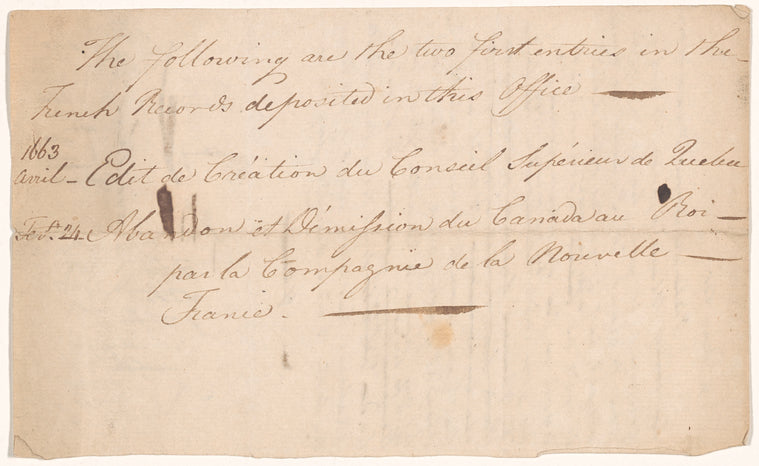 The following are the two first entries in the
French Records deposited in this Office
1663
Avril - Edit de Création du Conseil Supérieur de Quebec
Feb. 24 - Abandon et Démission du Canada au Roi
par la Compagnie de la Nouvelle
France.